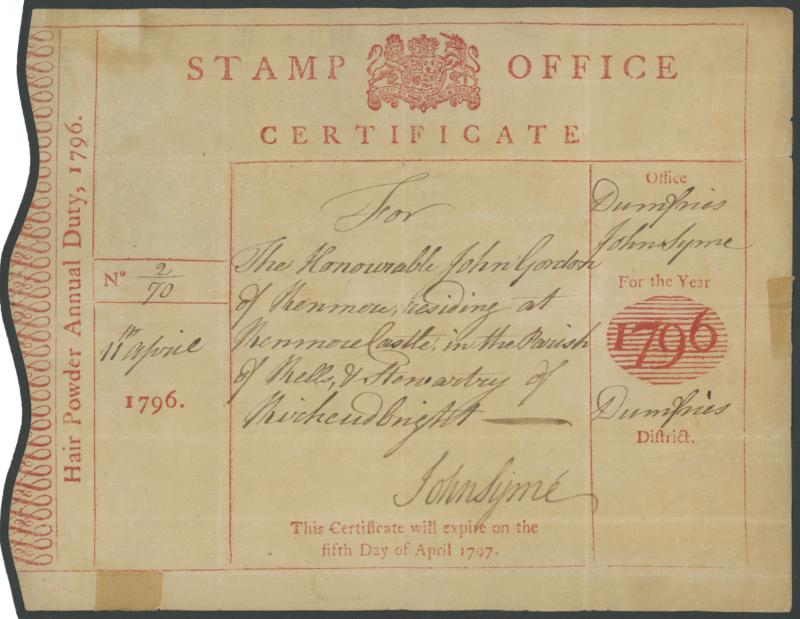 STAMP OFFICE
CERTIFICATE
Hair Powder Annual Duty, 1796.
No 2/70
11th April
1796.
For
The Honourable John Gordon
of Kenmore, residing at
Kenmore Castle, in the Parish
of Kells, & Stewartry of
Kirkcudbright
John Syme
This Certificate will expire on the
fifth Day of April 1797.
Office
Dumfries
John Syme
For the Year
1796
Dumfries
District.